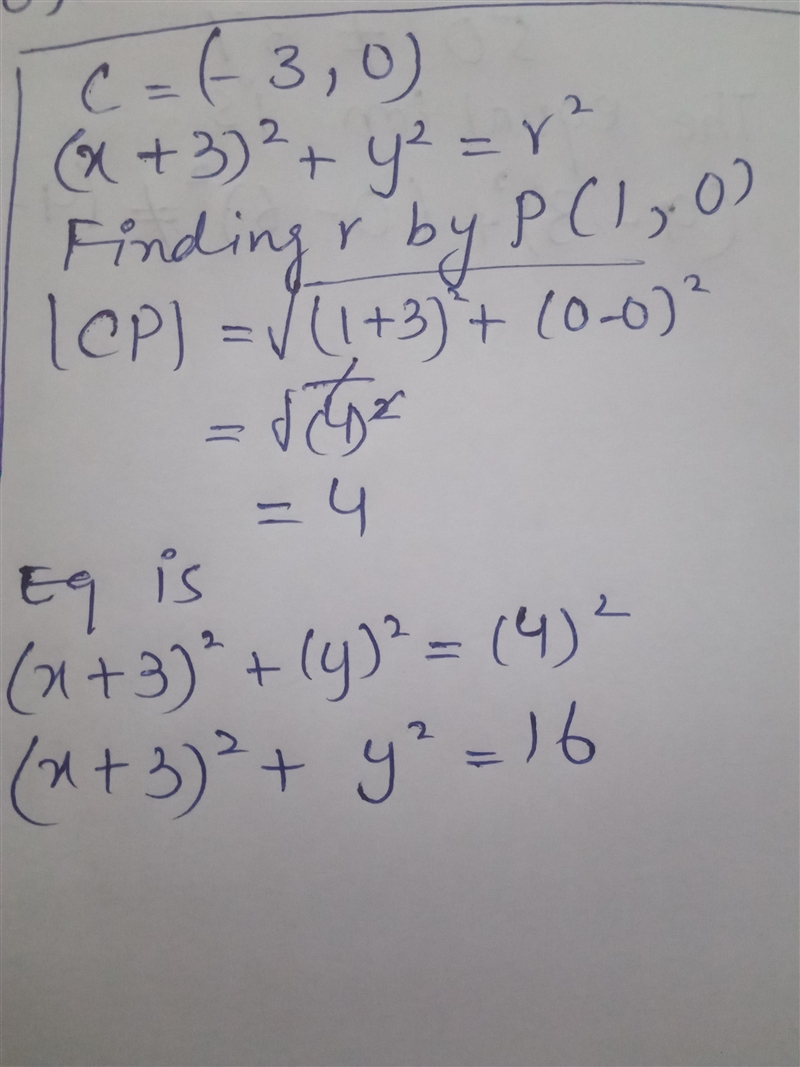 C = (-3, 0)
(x + 3)² + y² = r²
Finding r by P(1, 0)
|CP| = √(1+3)² + (0-0)²
= √(4)²
= 4
Eq is
(x+3)² + (y)² = (4)²
(x+3)² + y² = 16